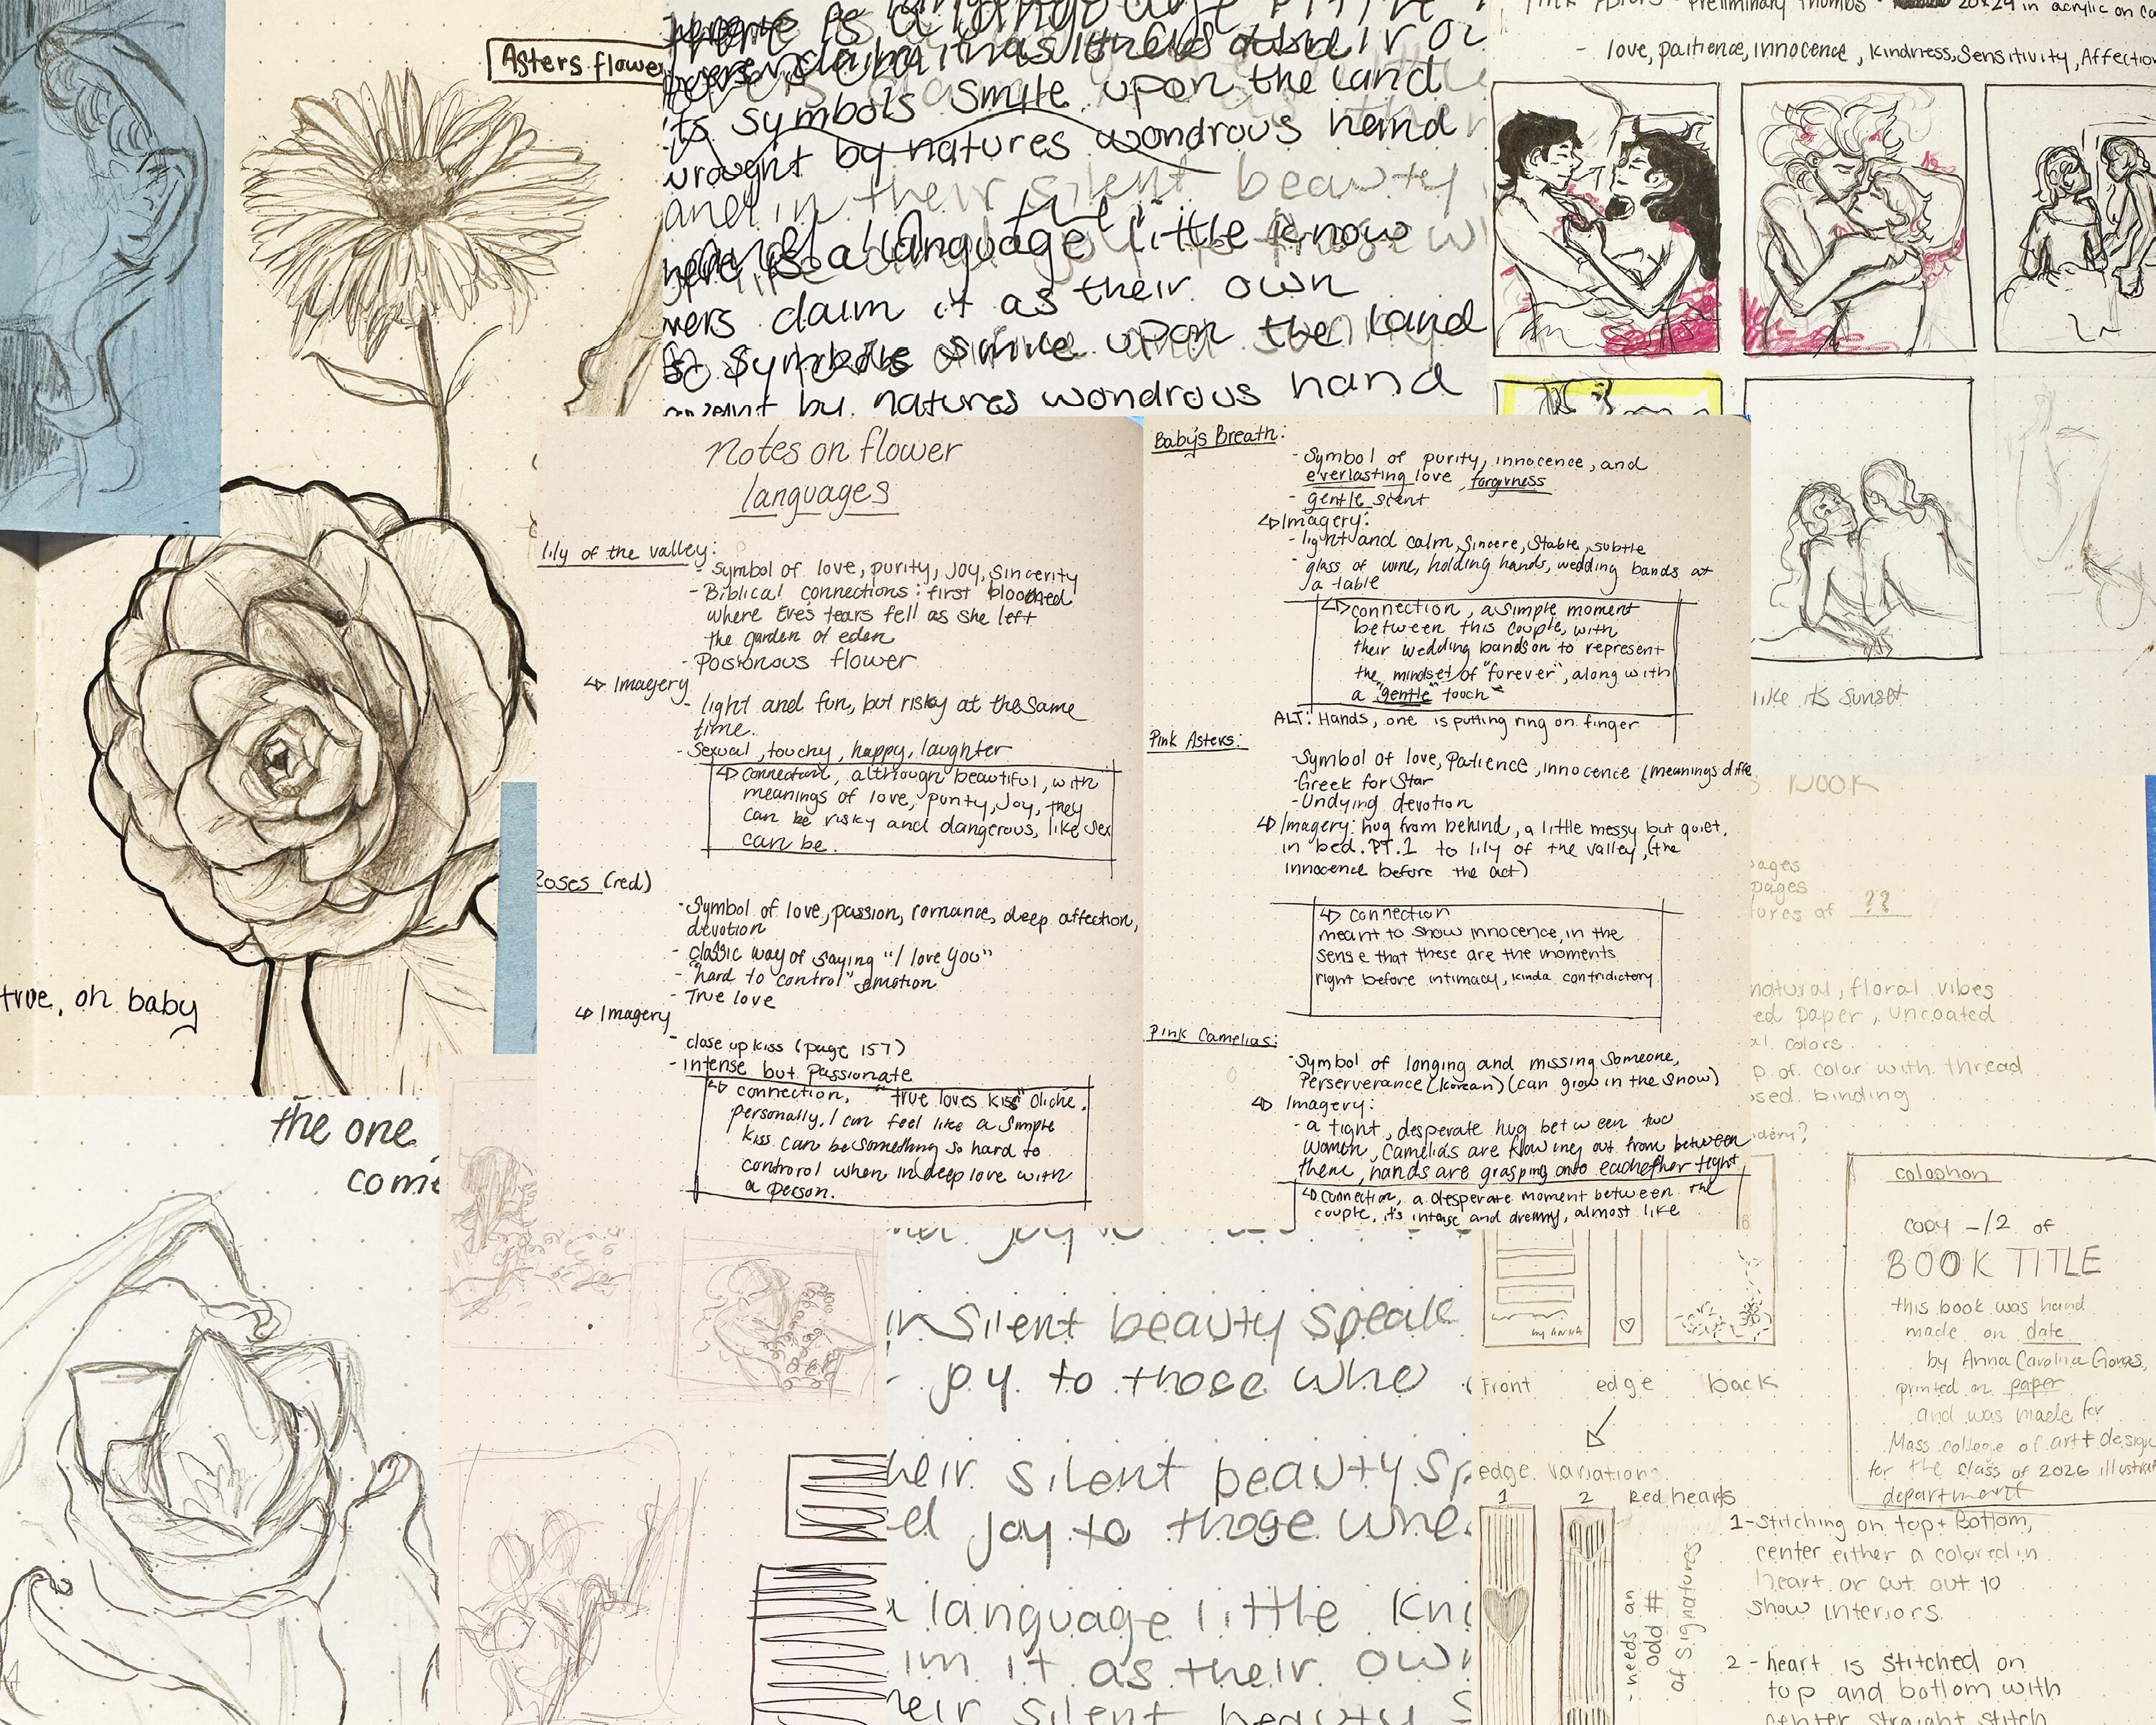 Asters flower
its symbols smile upon the land
wrought by natures wondrous hand
and in their silent beauty
is a language little know
claim it as their own
smile upon the land
by natures wondrous hand
Preliminary thumbs - 20x24 in acrylic on
- love, paitience, innocence, kindness, sensitivity, Affection
Notes on flower
languages
lily of the valley:
- Symbol of love, purity, Joy, Sincerity
- Biblical connections: first bloomed
where Eve's tears fell as she left
the garden of eden
- Poisonous flower
↳ Imagery
- light and fun, but risky at the same
time.
- Sexual, touchy, happy, laughter
↳ connection, although beautiful, with
meanings of love, purity, Joy, they
can be risky and dangerous, like sex
can be.
Roses (red)
- Symbol of love, passion, romance, deep affection,
devotion
- classic way of saying "I love you"
- "hard to control" emotion
- True love
↳ Imagery
- close up kiss (page 157)
- intense but passionate
↳ connection, "true loves kiss" cliche.
personally, I can feel like a simple
kiss can be something so hard to
controrol when in deep love with
a person.
Baby's Breath:
- Symbol of purity, innocence, and
everlasting love, forgivness
- gentle scent
↳ Imagery:
- light and calm, sincere, stable, subtle
- glass of wine, holding hands, wedding bands at
a table
↳ connection, a simple moment
between this couple, with
their wedding bands on to represent
the mindset of "forever", along with
a "gentle" touch
ALT: Hands, one is putting ring on finger
Pink Asters:
- Symbol of love, Patience, innocence (meanings diffe
- Greek for Star
- Undying devotion
↳ Imagery: hug from behind, a little messy but quiet,
in bed. PT.1 to lily of the valley, (the
innocence before the act)
↳ connection
meant to show innocence, in the
sense that these are the moments
right before intimacy, kinda contridictory
Pink Camelias:
- Symbol of longing and missing someone,
Perserverance (korean) (can grow in the snow)
↳ Imagery:
- a tight, desperate hug between two
women, Camelias are flowing out from between
them, hands are grasping onto eachother tight
↳ Connection, a desperate moment between the
couple, it's intense and dreamy, almost like
like its sunset
BOOK
pages
pages
tures of ??
natural, floral vibes
ed paper, uncoated
al colors
p of color with thread
osed binding
true, oh baby
the one
come
in silent beauty speak
joy to those who
heir silent beauty sp
joy to those who
language little kno
im it as their own
heir silent beauty s
by ANNA
front edge back
edge variations
1 2 Red hearts
- needs an
odd #
of signatures
colophon
copy -/2 of
BOOK TITLE
this book was hand
made on date
by Anna Carolina
printed on paper
and was made for
Mass college of art + design
for the class of 2026 illustrat
department
1 - Stitching on top + Bottom,
center either a colored in
heart or cut out to
show interiors.
2 - heart is stitched on
top and bottom with
center straight stitch